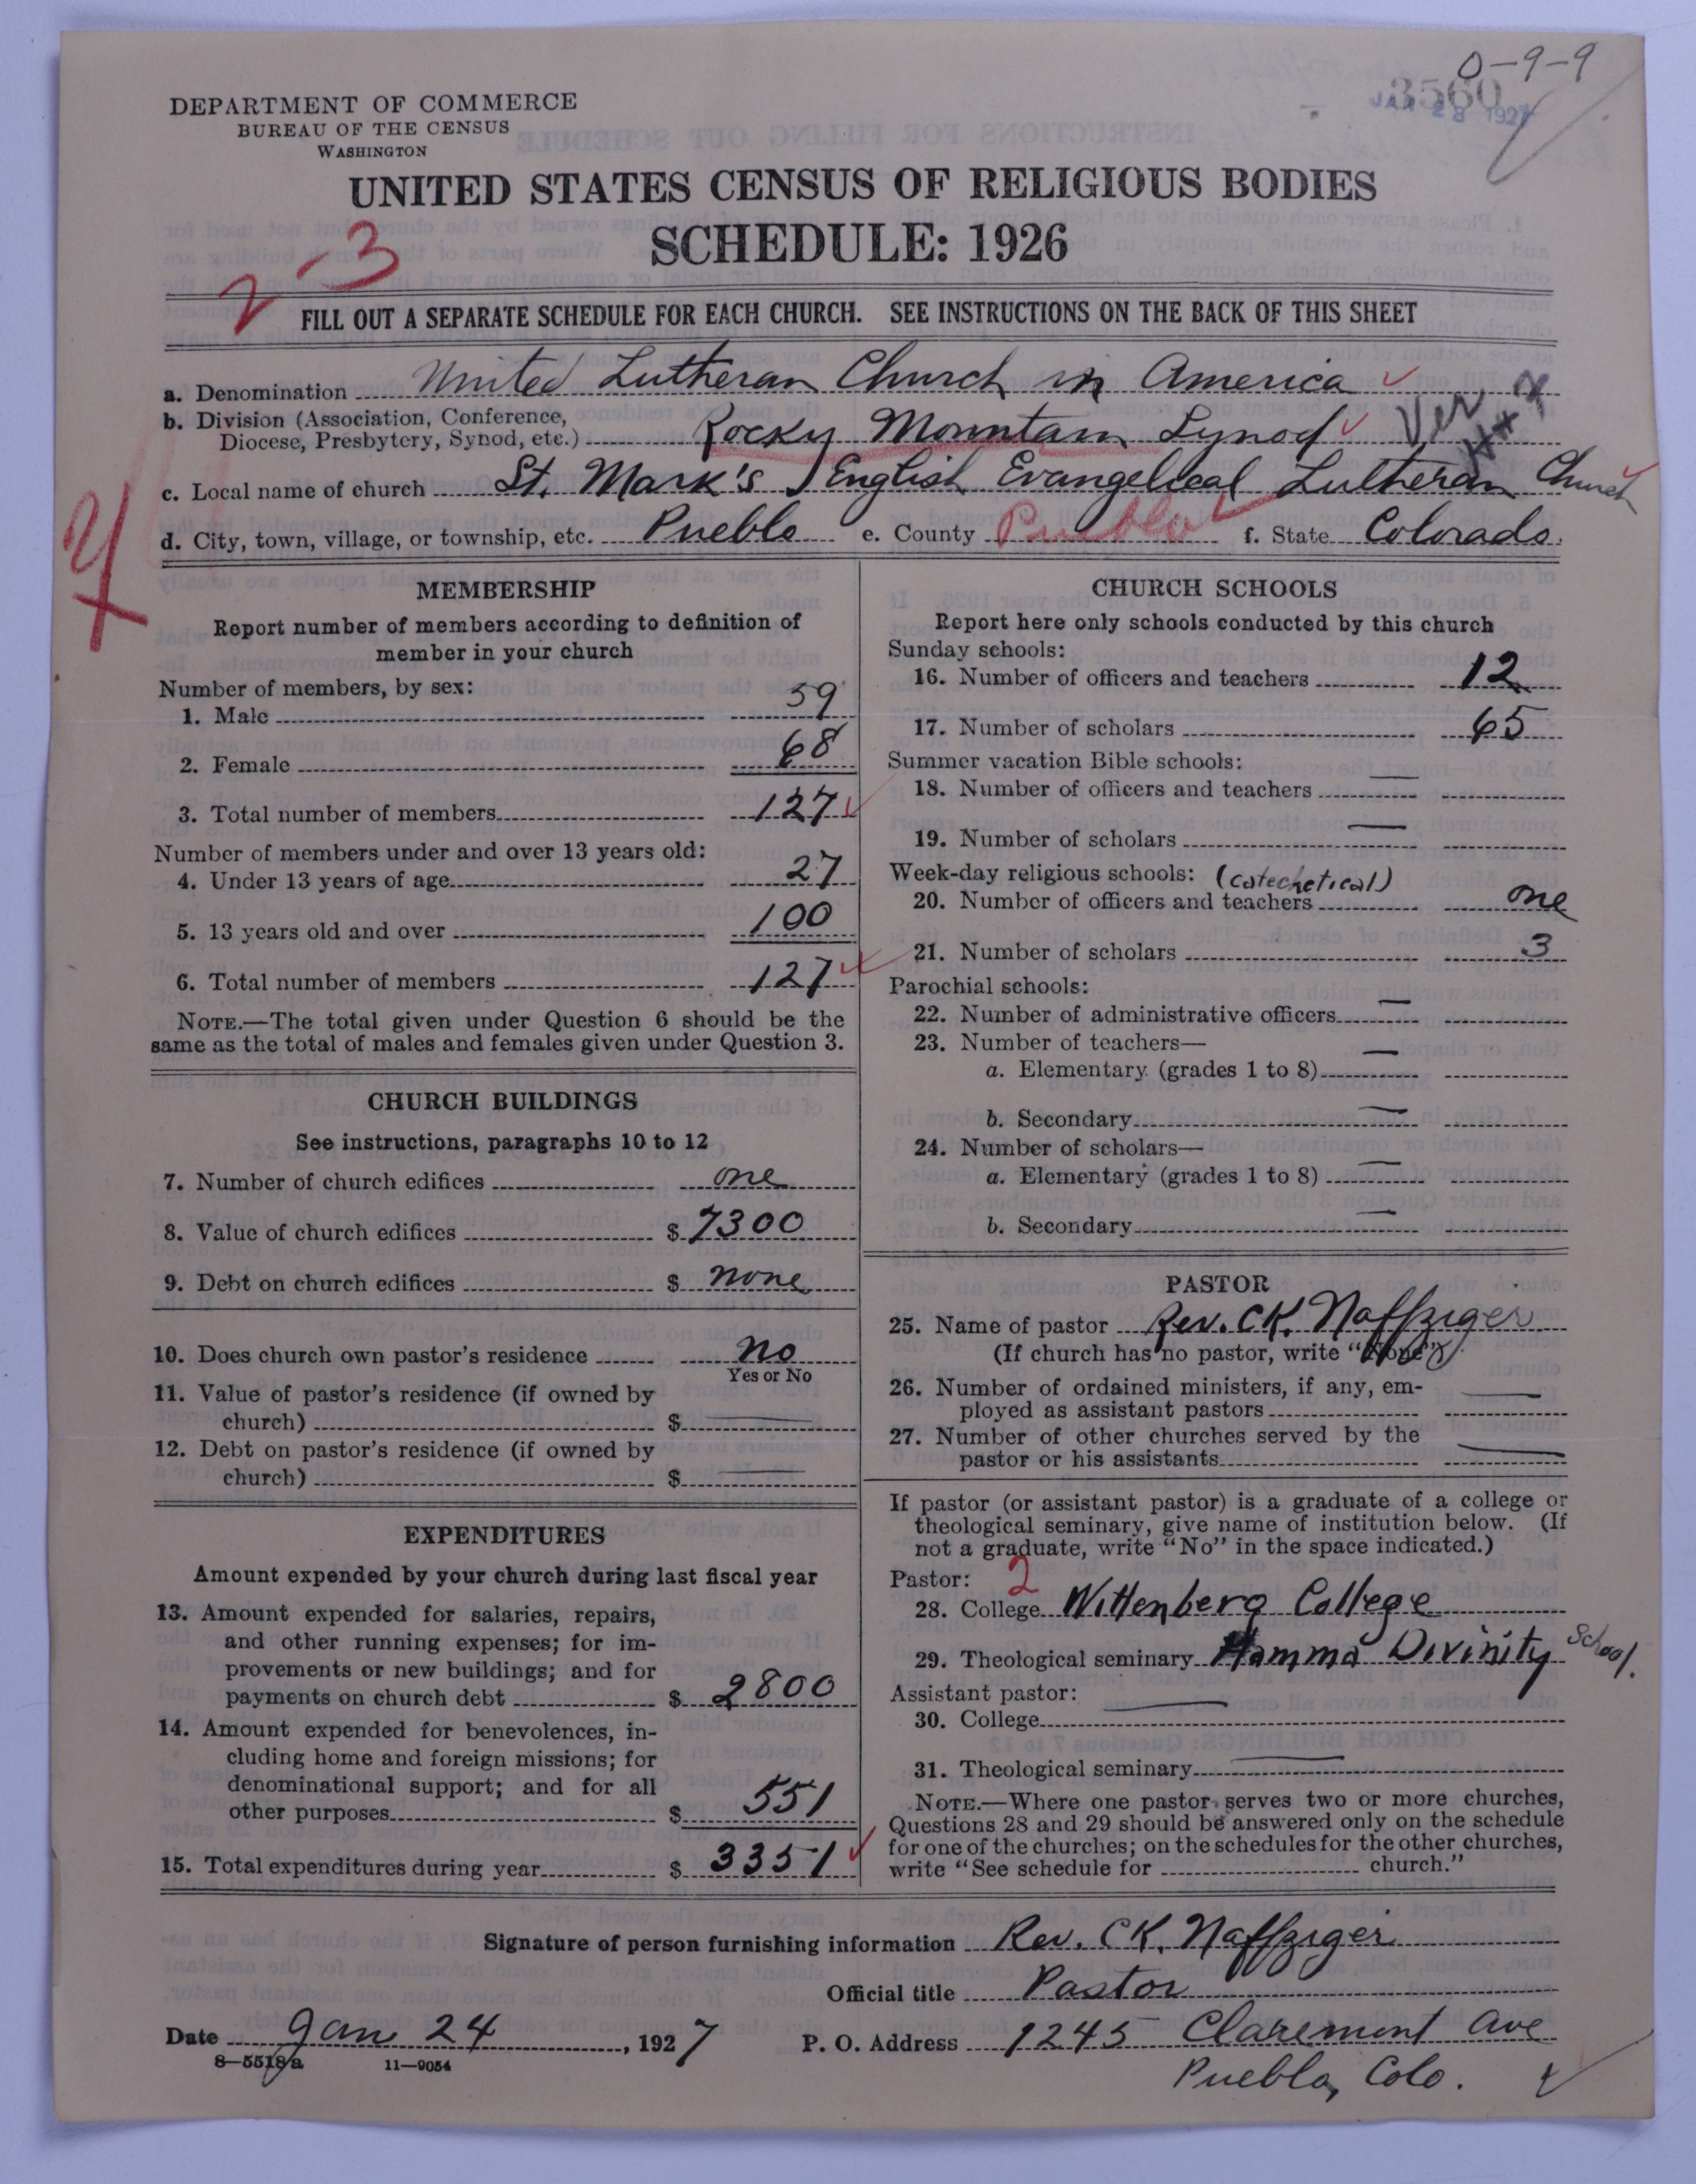 0-9-9
3560
JAN 28 1927
DEPARTMENT OF COMMERCE
BUREAU OF THE CENSUS
WASHINGTON
UNITED STATES CENSUS OF RELIGIOUS BODIES
SCHEDULE: 1926
2-3
FILL OUT A SEPARATE SCHEDULE FOR EACH CHURCH. SEE INSTRUCTIONS ON THE BACK OF THIS SHEET
a. Denomination United Lutheran Church in America
b. Division (Association, Conference,
Diocese, Presbytery, Synod, etc.) Rocky Mountain Synod
Ver
c. Local name of church St. Mark's English Evangelical Lutheran Church
d. City, town, village, or township, etc. Pueblo e. County Pueblo f. State Colorado.
MEMBERSHIP
Report number of members according to definition of
member in your church
Number of members, by sex:
1. Male 59
2. Female 68
3. Total number of members 127
Number of members under and over 13 years old:
4. Under 13 years of age 27
5. 13 years old and over 100
6. Total number of members 127
NOTE.—The total given under Question 6 should be the
same as the total of males and females given under Question 3.
CHURCH BUILDINGS
See instructions, paragraphs 10 to 12
7. Number of church edifices one
8. Value of church edifices $ 7300
9. Debt on church edifices $ none
10. Does church own pastor's residence no
Yes or No
11. Value of pastor's residence (if owned by
church) $ —
12. Debt on pastor's residence (if owned by
church) $ —
EXPENDITURES
Amount expended by your church during last fiscal year
13. Amount expended for salaries, repairs,
and other running expenses; for im-
provements or new buildings; and for
payments on church debt $ 2800
14. Amount expended for benevolences, in-
cluding home and foreign missions; for
denominational support; and for all
other purposes $ 551
15. Total expenditures during year $ 3351
CHURCH SCHOOLS
Report here only schools conducted by this church
Sunday schools:
16. Number of officers and teachers 12
17. Number of scholars 65
Summer vacation Bible schools:
18. Number of officers and teachers —
19. Number of scholars —
Week-day religious schools: (catechetical)
20. Number of officers and teachers one
21. Number of scholars 3
Parochial schools:
22. Number of administrative officers —
23. Number of teachers—
a. Elementary (grades 1 to 8) —
b. Secondary —
24. Number of scholars—
a. Elementary (grades 1 to 8) —
b. Secondary —
PASTOR
25. Name of pastor Rev. CK. Naffziger
(If church has no pastor, write "None")
26. Number of ordained ministers, if any, em-
ployed as assistant pastors —
27. Number of other churches served by the
pastor or his assistants —
If pastor (or assistant pastor) is a graduate of a college or
theological seminary, give name of institution below. (If
not a graduate, write "No" in the space indicated.)
Pastor: 2
28. College Wittenberg College
29. Theological seminary Hamma Divinity School.
Assistant pastor: —
30. College
31. Theological seminary —
NOTE.—Where one pastor serves two or more churches,
Questions 28 and 29 should be answered only on the schedule
for one of the churches; on the schedules for the other churches,
write "See schedule for church."
Signature of person furnishing information Rev. CK. Naffziger
Official title Pastor
Date Jan 24, 1927 P. O. Address 1245 Claremont Ave
8—5518a 11—9054
Pueblo, Colo.